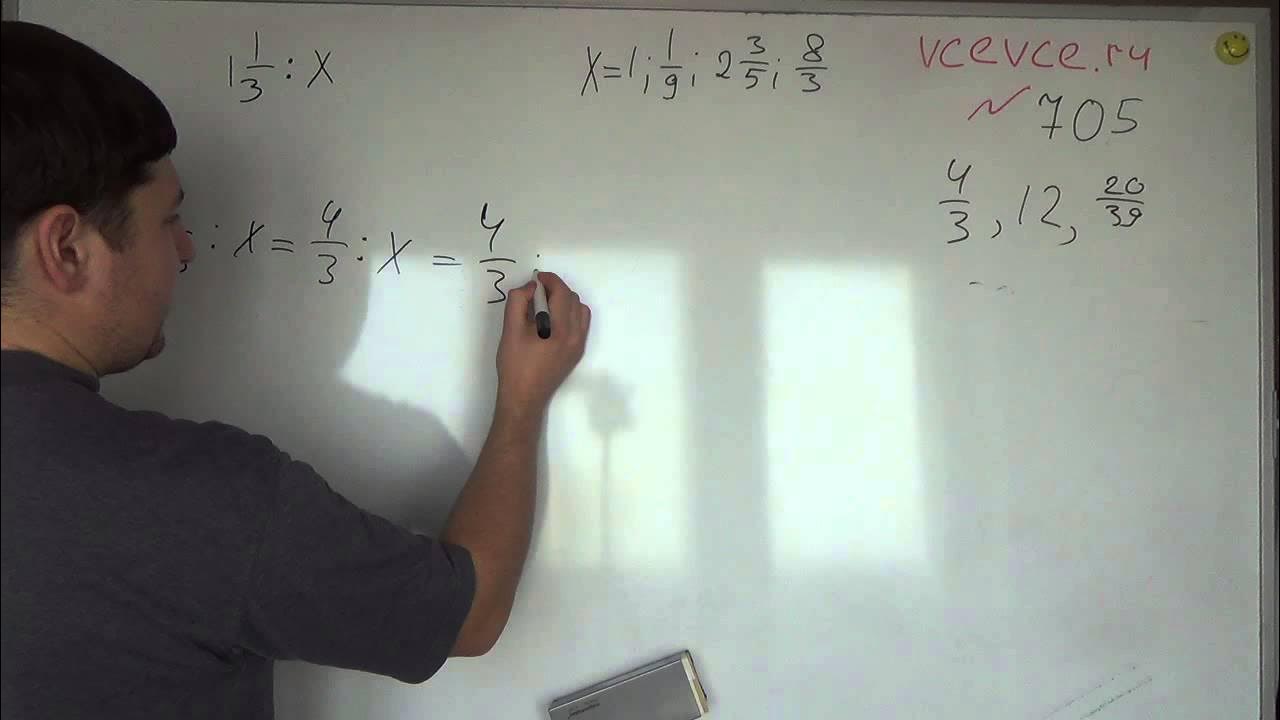 1 1/3 : X
X=1; 1/9; 2 3/5; 8/3
vcevce.ru
~ 705
4/3, 12, 20/39
: X = 4/3 : X = 4/3 :